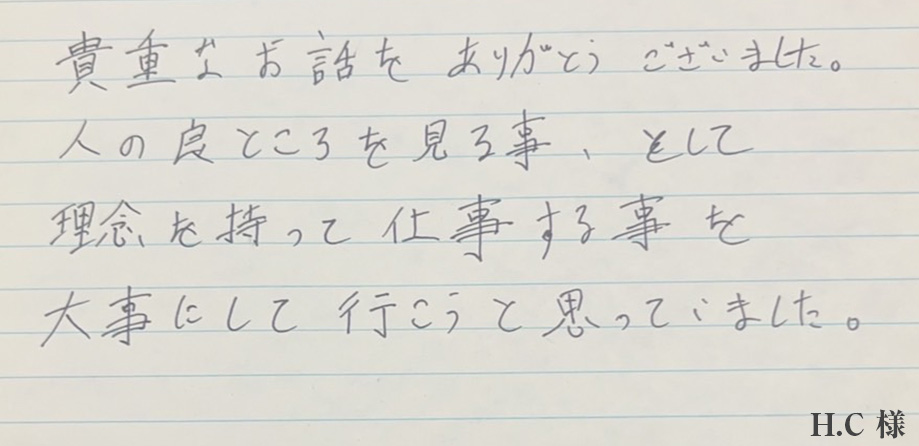 貴重なお話を ありがとう ございました。
人の良ところを見る事、そして
理念を持って 仕事する事を
大事にして 行こうと思っていました。
H.C 様